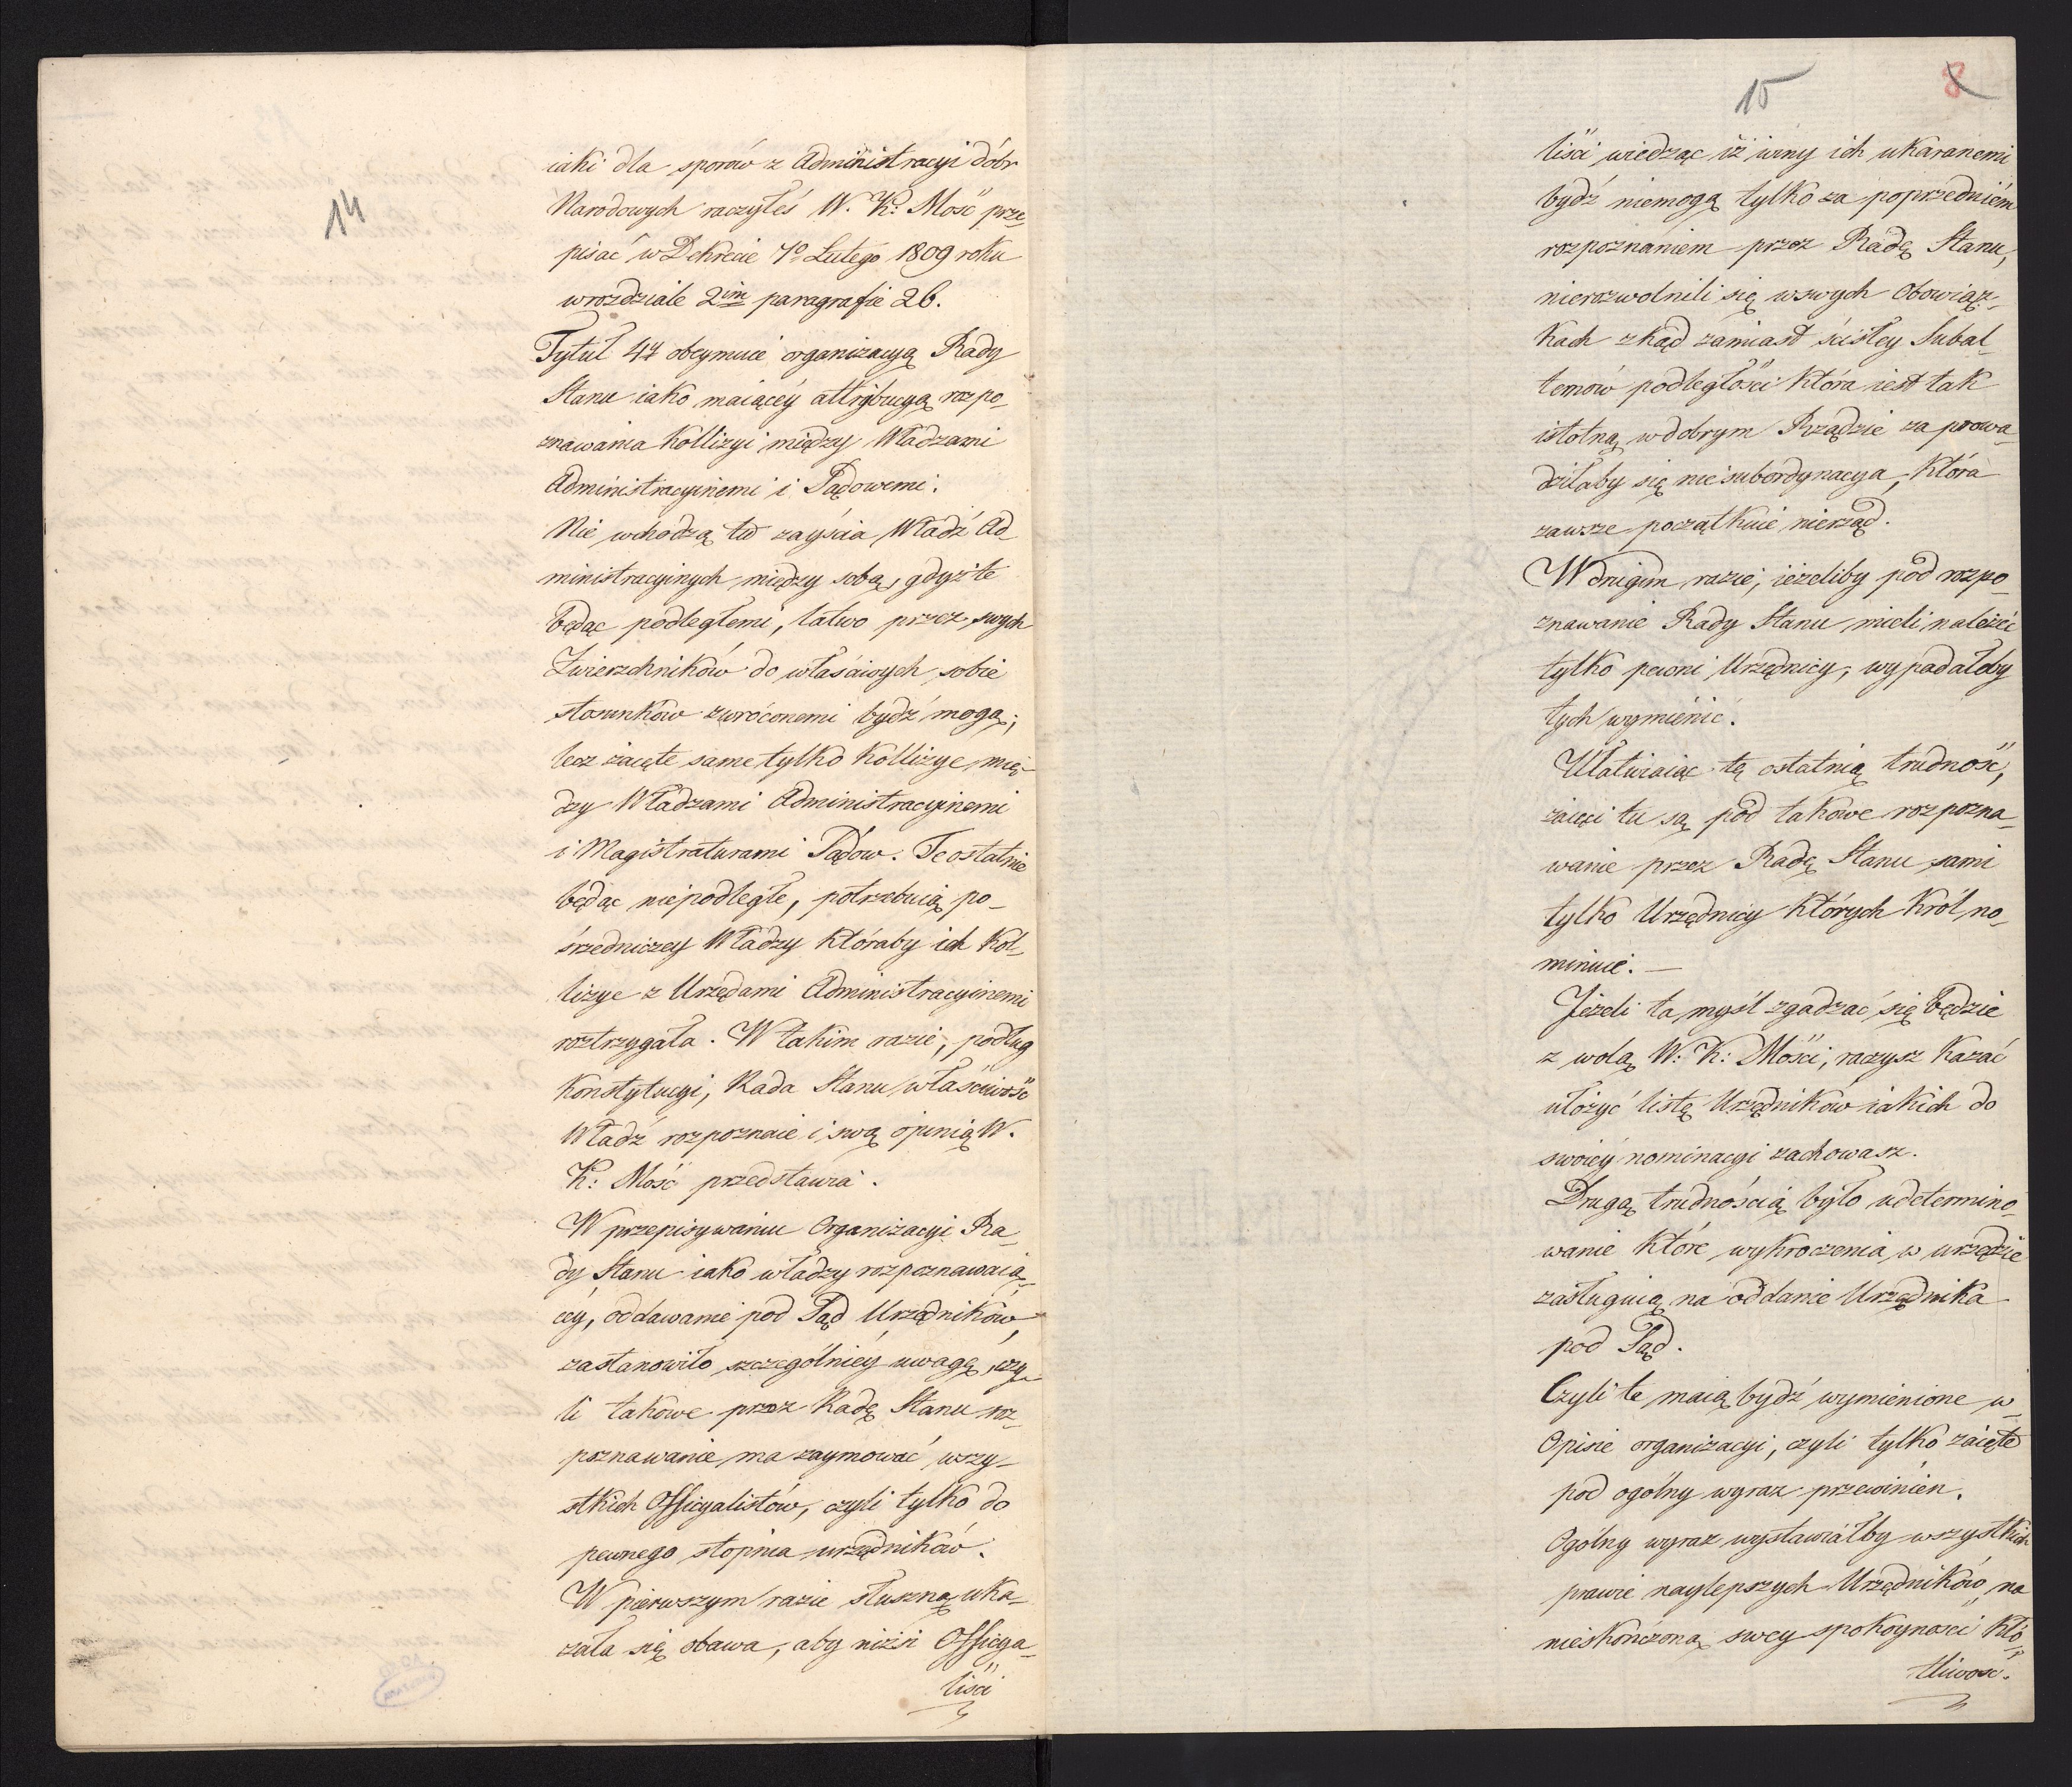 14
iaki dla sporów z Administracyi dóbr
Narodowych raczyłeś W. K: Mość prze-
pisać w Dekrecie 7º Lutego 1809 roku
w rozdziale 2im paragrafie 26.
Tytuł 4ty obeymuie organizacyą Rady
Stanu iako maiącéy attrybucyą rozpo-
znawania kollizyi między Władzami
Administracyinemi i Sądowemi.
Nie wchodzą tu zayścia Władz Ad-
ministracyinych między sobą, gdyż te
będąc podległemi, łatwo przez swych
Zwierzchników do właściwych sobie
stosunków zwróconemi bydź mogą;
lecz zaięte same tylko kollizye mię-
dzy Władzami Administracyinemi
i Magistraturami Sądow. Te ostatnie
będąc niepodległe, potrzebuią po-
średniczey Władzy któraby ich kol-
lizye z Urzędami Administracyinemi
roztrzygała. W takim razie, podług
Konstytucyi, Rada Stanu właściwość
Władz rozpoznaie i swą opinią W.
K: Mość przedstawia.
W przepisywaniu Organizacyi Ra-
dy Stanu iako władzy rozpoznawaią-
céy, oddawanie pod Sąd Urzędników,
zastanowiło szczególniey uwagę, czy-
li takowe przez Radę Stanu roz-
poznawanie ma zaymować wszy-
stkich Officyalistów, czyli tylko do
pewnego stopnia urzędników.
W pierwszym razie słuszną uka-
zała się obawa, aby niżsi Officya-
liści
15
8
liści wiedząc iż winy ich ukaranemi
bydź niemogą tylko za poprzedniém
rozpoznaniem przez Radę Stanu,
nierozwolnili się w swych Obowiąz-
kach zkąd zamiast ścisłey Subal-
ternów podległości która iest tak
istotną w dobrym Rządzie zaprowa-
dziłaby się niesubordynacya, która
zawsze początkuie nierząd.
W drugim razie, ieżeliby pod rozpo-
znawanie Rady Stanu mieli należeć
tylko pewni Urzędnicy, wypadałoby
tych wymienić.
Ułatwiaiąc tę ostatnią trudność,
zaięci tu są pod takowe rozpozna-
wanie przez Radę Stanu sami
tylko Urzędnicy których Król no-
minuie. —
Jeżeli ta myśl zgadzać się będzie
z wolą W: K: Mości, raczysz kazać
ułożyć listę Urzędników iakich do
swoiéy nominacyi zachowasz.
Drugą trudnością było udetermino-
wanie które wykroczenia w urzędzie
zasługuią na oddanie Urzędnika
pod Sąd.
Czyli te maią bydź wymienione w
Opisie organizacyi, czyli tylko zaięte
pod ogólny wyraz przewinien.
Ogólny wyraz wystawiałby wszystkich
prawie naylepszych Urzędników na
nieskończoną swey spokoyności kłó-
tliwość.